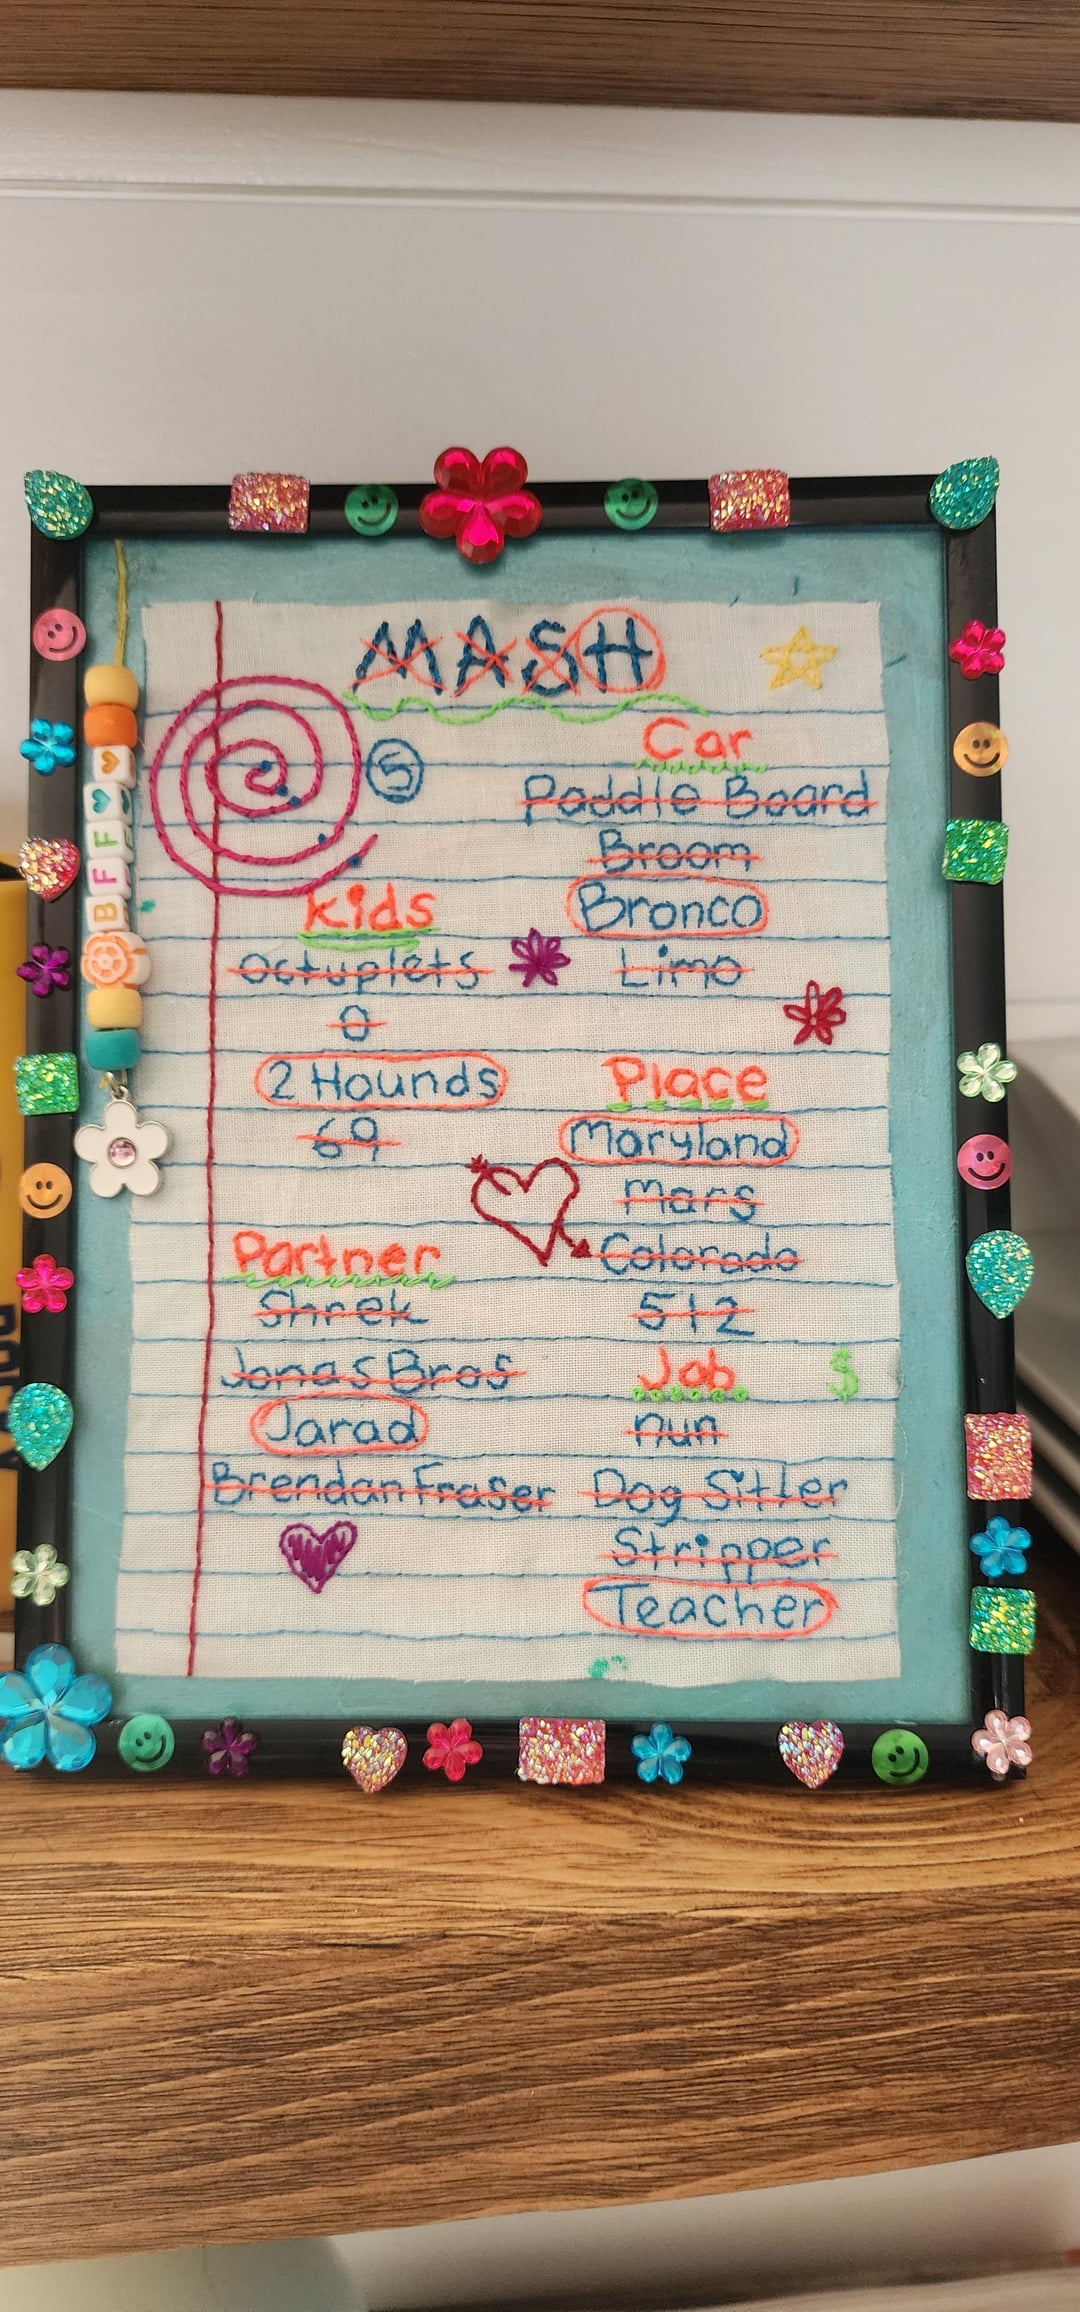 MASH
5
Car
Paddle Board
Broom
Bronco
Limo
Kids
Octuplets
0
2 Hounds
69
Place
Maryland
Mars
Colorado
512
Partner
Shrek
Jonas Bros
Jarad
Brendan Fraser
Job
$
nun
Dog Sitter
Stripper
Teacher
BFF